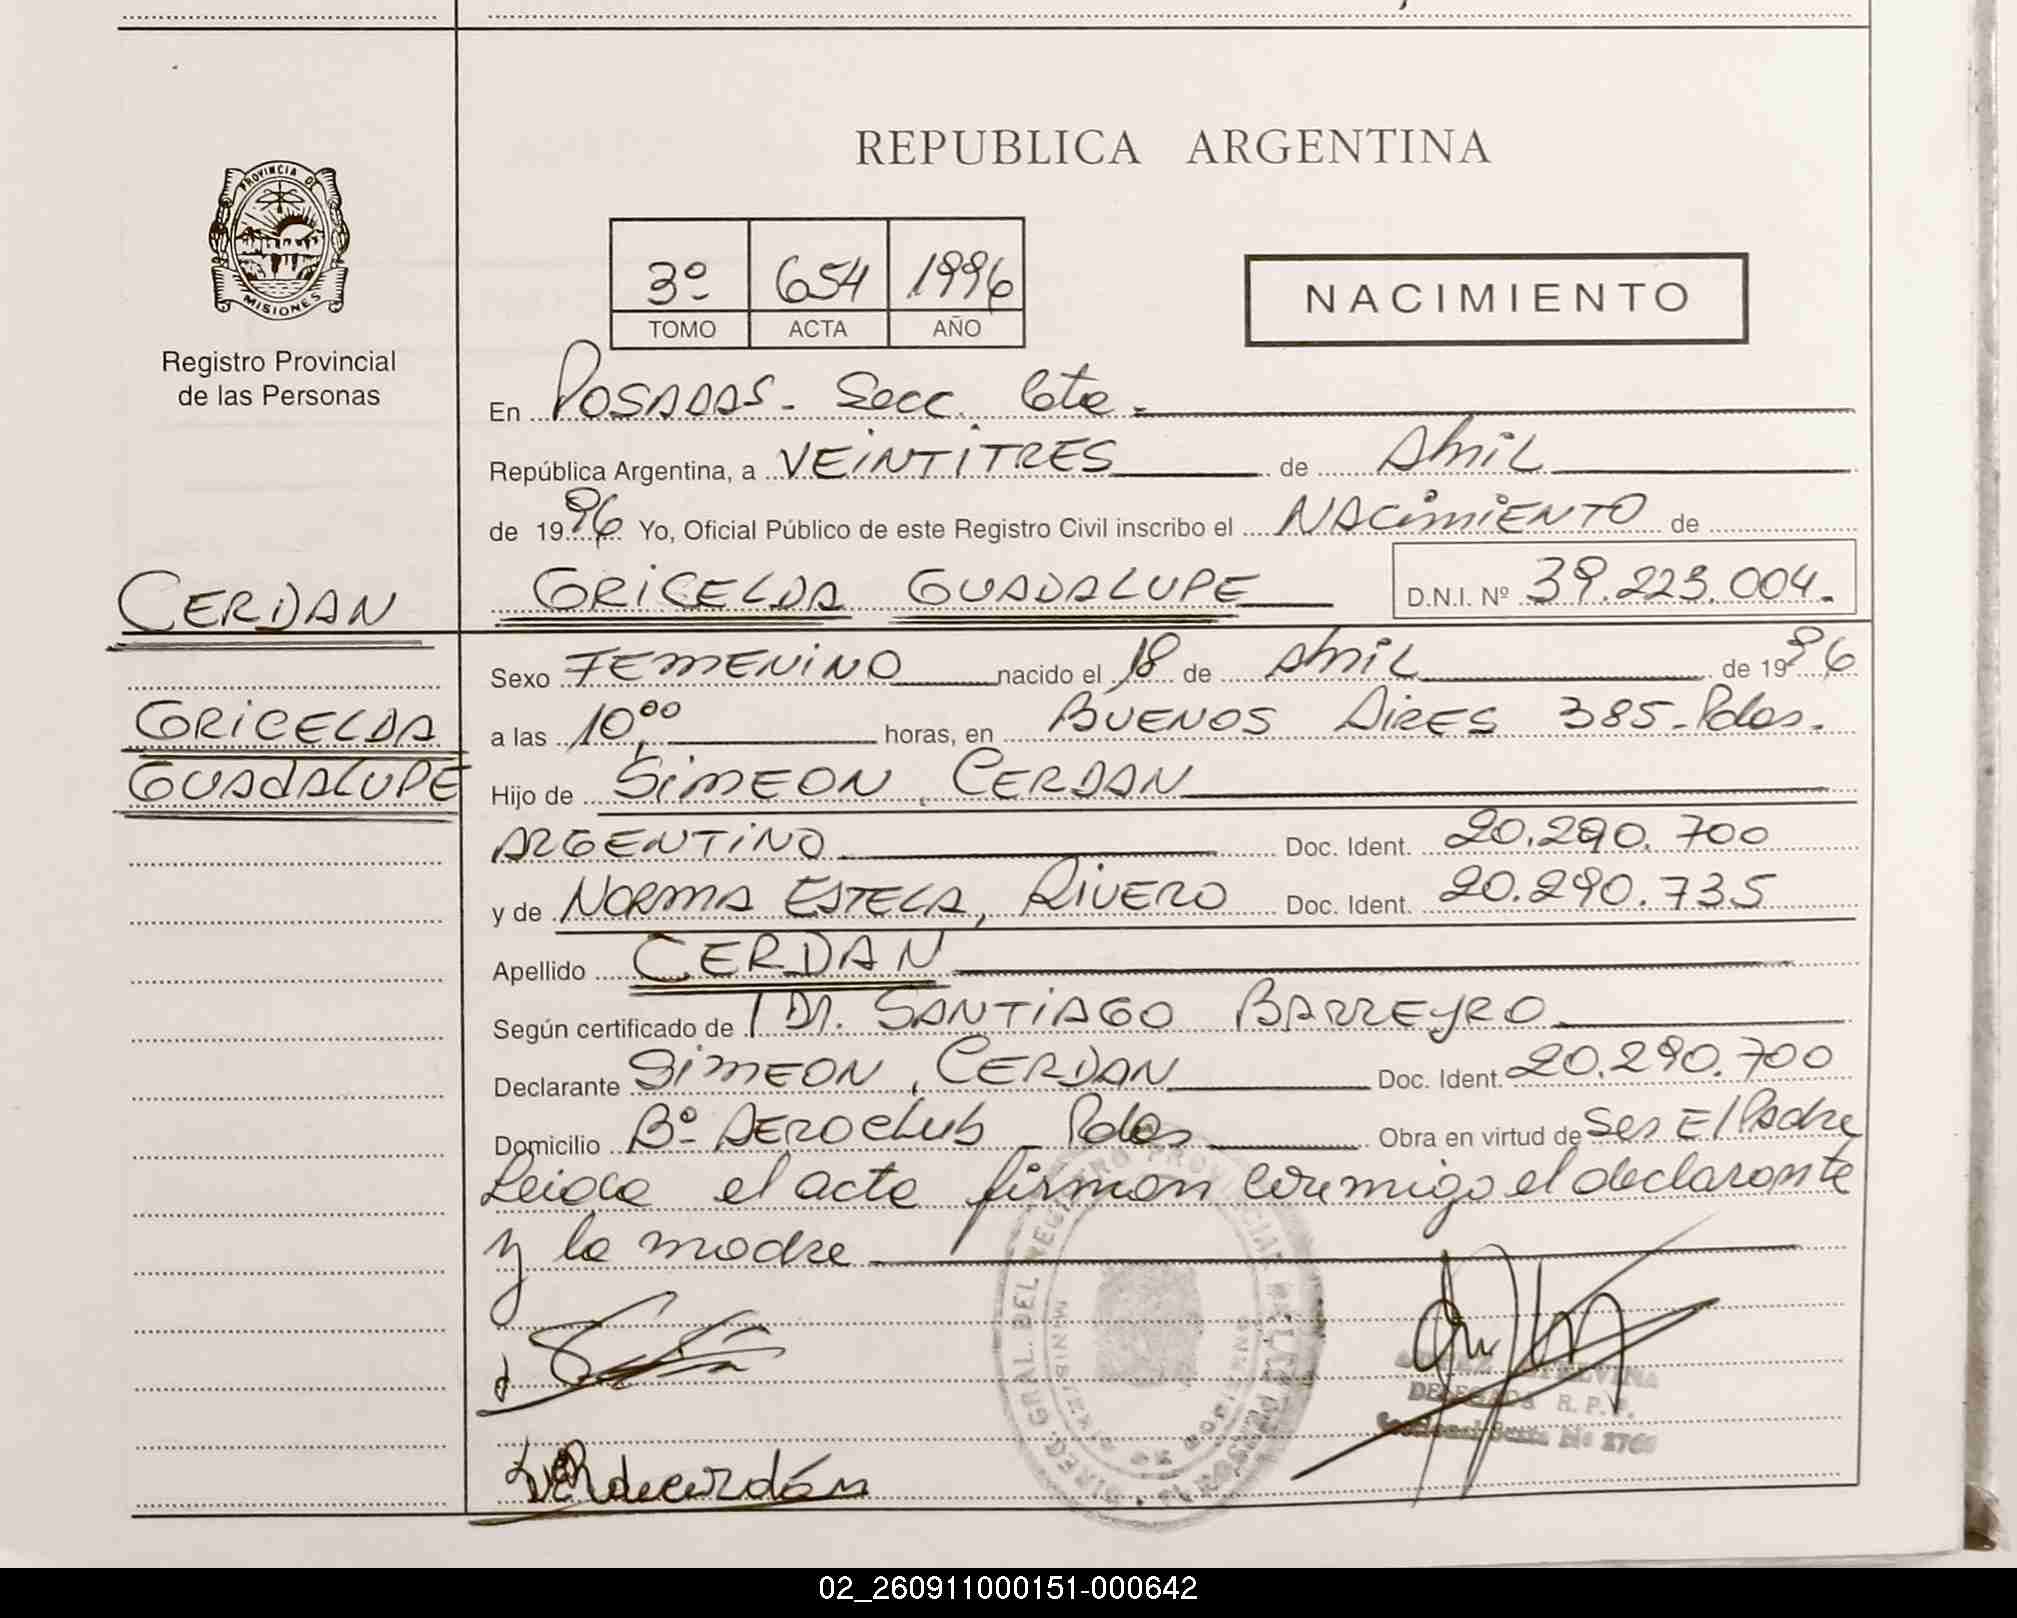 REPUBLICA ARGENTINA
PROVINCIA DE
MISIONES
Registro Provincial
de las Personas
3º 654 1996
TOMO ACTA AÑO
NACIMIENTO
En POSADAS - Secc. 6ta -
República Argentina, a VEINTITRES de Abril
de 1996 Yo, Oficial Público de este Registro Civil inscribo el NACIMIENTO de
CERDAN
GRICELDA GUADALUPE D.N.I. Nº 39.223.004.
Sexo FEMENINO nacido el 18 de Abril de 1996
GRICELDA
GUADALUPE
a las 10,00 horas, en BUENOS AIRES 385 - Pdas.
Hijo de SIMEON, CERDAN
ARGENTINO Doc. Ident. 20.290.700
y de NORMA ESTELA, RIVERO Doc. Ident. 20.290.735
Apellido CERDAN
Según certificado de Dr. SANTIAGO BARREYRO
Declarante SIMEON, CERDAN Doc. Ident. 20.290.700
Domicilio Bº AEROCLUB - Pdas Obra en virtud de Ser El Padre
Leida el acta firman conmigo el declarante
y la madre
DIREC. GRAL. DEL REGISTRO PROVINCIAL DE LAS PERSONAS
DELEGADA R.P.P.
Seccional Sexta Nº
de cerdán
02_260911000151-000642